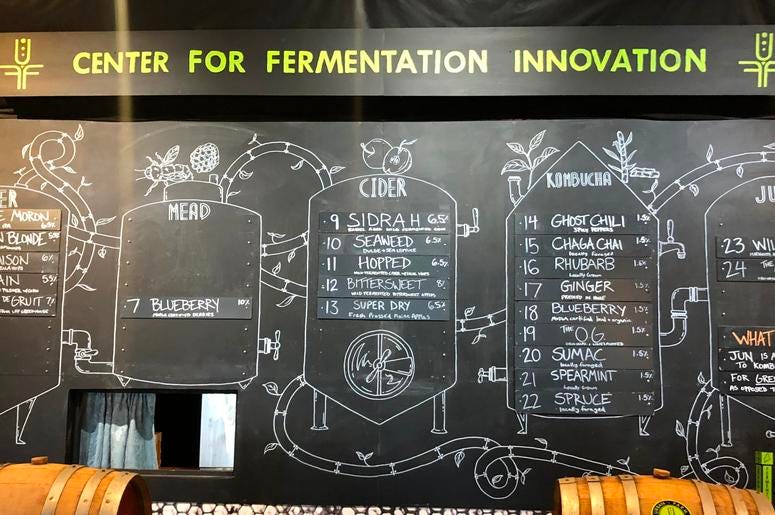 CENTER FOR FERMENTATION INNOVATION
ER
MORON
6.5%
BLONDE
NSON 6%
AIN 5%
DE GRUIT 7%
MEAD
7 BLUEBERRY 10%
CIDER
9 SIDRAH 6.5%
10 SEAWEED 6.5%
DULSE & SEA LETTUCE
11 HOPPED 6.5%
12 BITTERSWEET 8%
WILD FERMENTED BITTERSWEET APPLES
13 SUPER DRY 6.5%
Fresh Pressed Maine Apples
KOMBUCHA
14 GHOST CHILI 1.5%
SPICY PEPPERS
15 CHAGA CHAI 1.5%
locally foraged
16 RHUBARB 1.5%
locally Grown
17 GINGER 1.5%
18 BLUEBERRY 1.5%
19 THE O.G. 1.5%
20 SUMAC 1.5%
locally foraged
21 SPEARMINT 1.5%
locally Grown
22 SPRUCE 1.5%
locally foraged
JU
23 WIL
24 THE
WHAT
JUN IS A
TO KOMB
FOR GRE
AS OPPOSED T